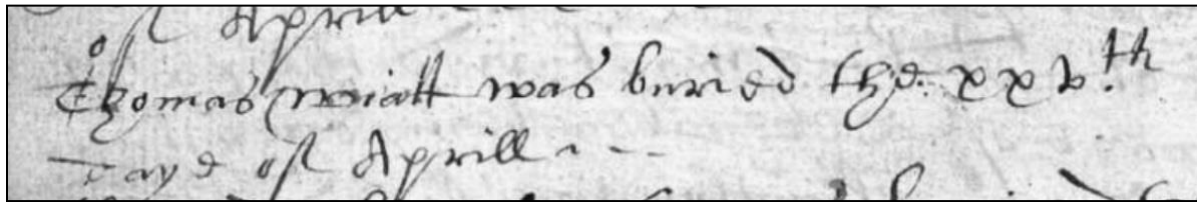 of Aprill
Thomas Wiatt was buried the xxv.th
daye of Aprill